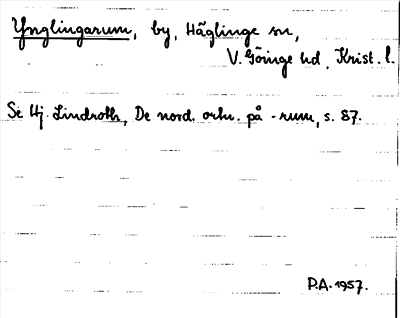 Ynglingarum, by, Häglinge sn,
V. Göinge hd, Krist. l.
Se Hj. Lindroth, De nord. ortn. på -rum, s. 87.
P.A. 1957.